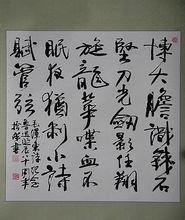 博大膽識鐵石
堅刀光劍影任翔
旋龍華喋血不
眠夜猶制小詩
賦管弦
毛澤東詩紀念
魯迅八十周年
書